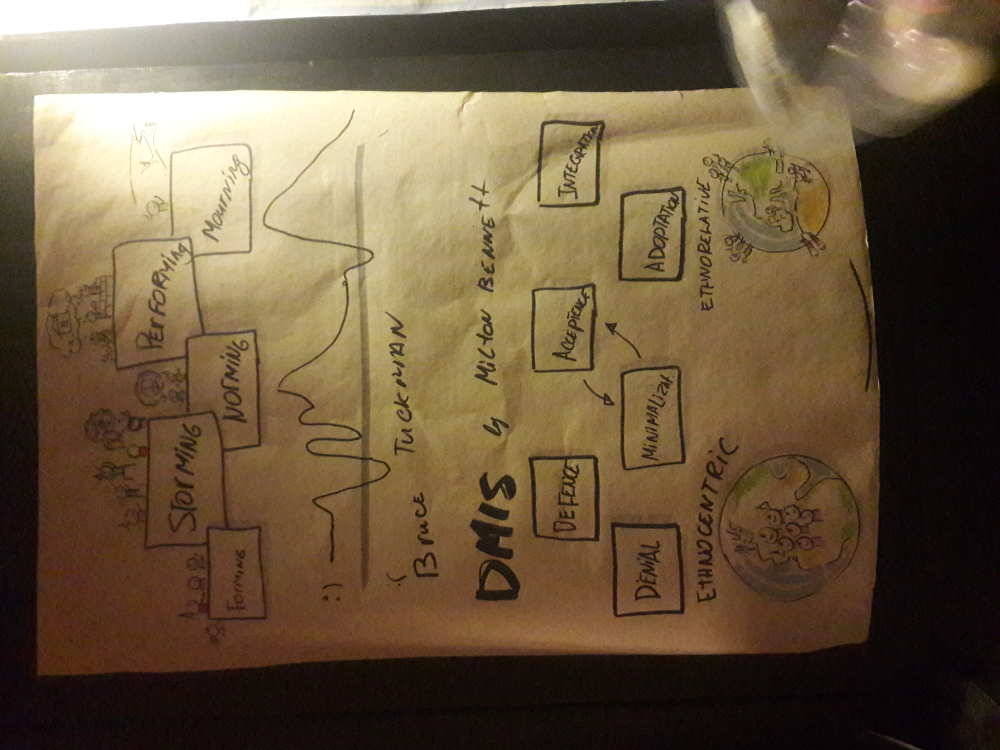 FORMING
STORMING
NORMING
PERFORMING
Mourning
:)
:(
Bruce TUCKMAN
DMIS by MILTON BENNEtt
DEFENCE
ACCEPTENCE
INTEGRATION
DENIAL
ADOPTATION
ETHNOCENTRIC
ETHNORELATIVE